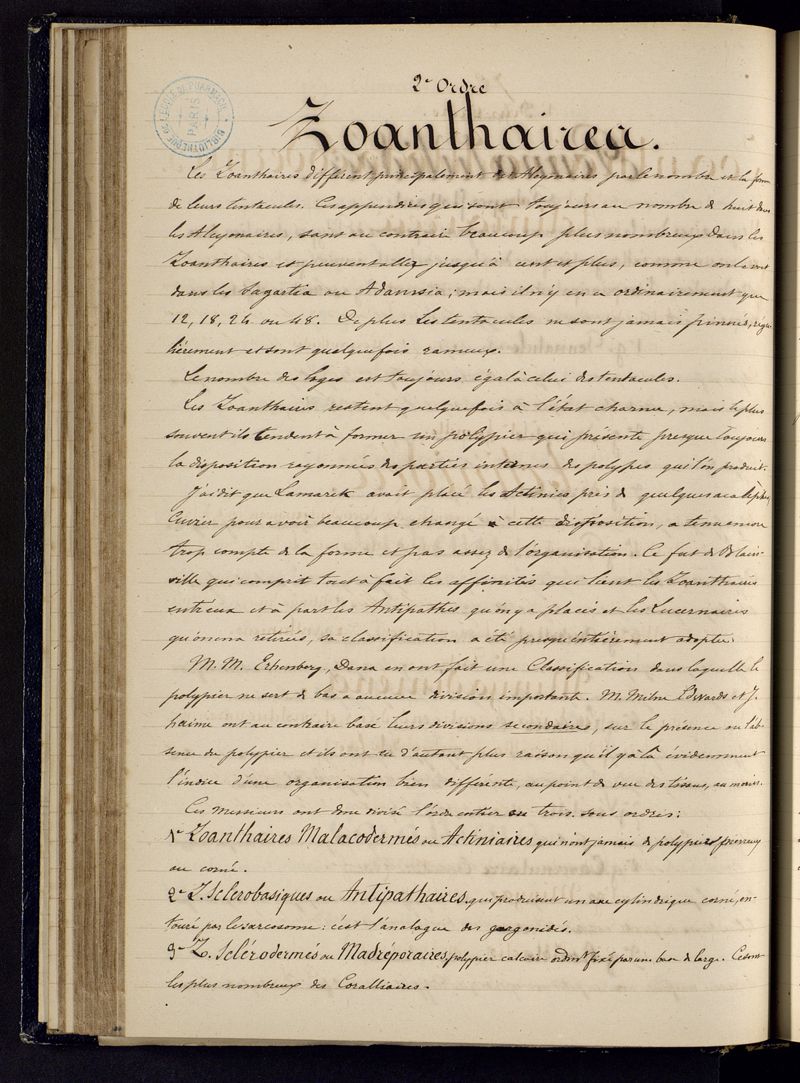 2e Ordre
Zoanthairea.
BIBLIOTHÈQUE DE L'ECOLE DE PHARMACIE PARIS
Les Zoanthaires différent principalement des Alcyonaires par le nombre et la forme
de leurs tentacules. Ces appendices qui sont toujours au nombre de huit dans
les Alcyonaires, sont au contraire beaucoup plus nombreux dans les
Zoanthaires et peuvent allez jusqu'à cent et plus, comme on le voit
dans les Sagartia ou Adamsia; mais il n'y en a ordinairement que
12, 18, 24 ou 48. De plus les tentacules ne sont jamais pinnés, régu-
lièrement et sont quelquefois rameux.
Le nombre des loges est toujours égal à celui des tentacules.
Les Zoanthaires restent quelquefois à l'état charnu, mais le plus
souvent ils tendent à former un polypier qui présente presque toujours
la disposition rayonnées des parties internes des polypes qui l'on produit.
J'ai dit que Lamarck avait placé les Actinies près de quelques acalèphes,
Cuvier pour avoir beaucoup changé à cette disposition, a tenu encore
trop compte de la forme et pas assez de l'organisation. Ce fut de Blain-
ville qui comprit tout à fait les affinités qui lient les Zoanthaires
entr'eux et à part les Antipathes qu'on y a placés et les Lucernaires
qu'on en a retirés, sa classification a été presqu'entièrement adoptée.
M. M. Erhenberg, Dana en ont fait une Classification dans laquelle le
polypier ne sert de bas a aucune division importante. M. Milne Edwards et J.
haime ont au contraire basé leurs divisions secondaires, sur la présence ou l'ab-
sence du polypier et ils ont eu d'autant plus raison qu'il y a là évidemment
l'indice d'une organisation bien différente, au point de vue des tissus, au moins.
Ces Messieurs ont donc divisé l'ordre entier en trois sous ordres:
1e Zoanthaires Malacodermés ou Actiniaires qui n'ont jamais de polypiers pierreux
ou corné.
2e Z. Sclérobasiques ou Antipathaires, qui produisent un axe cylindrique corné, en-
touré par le sarcosome: c'est l'analogue des gorgonidés.
3e Z. Sclérodermés ou Madréporaires, polypier calcaire ordint fixé par une base de large. Ce sont
les plus nombreux des Coralliaires.